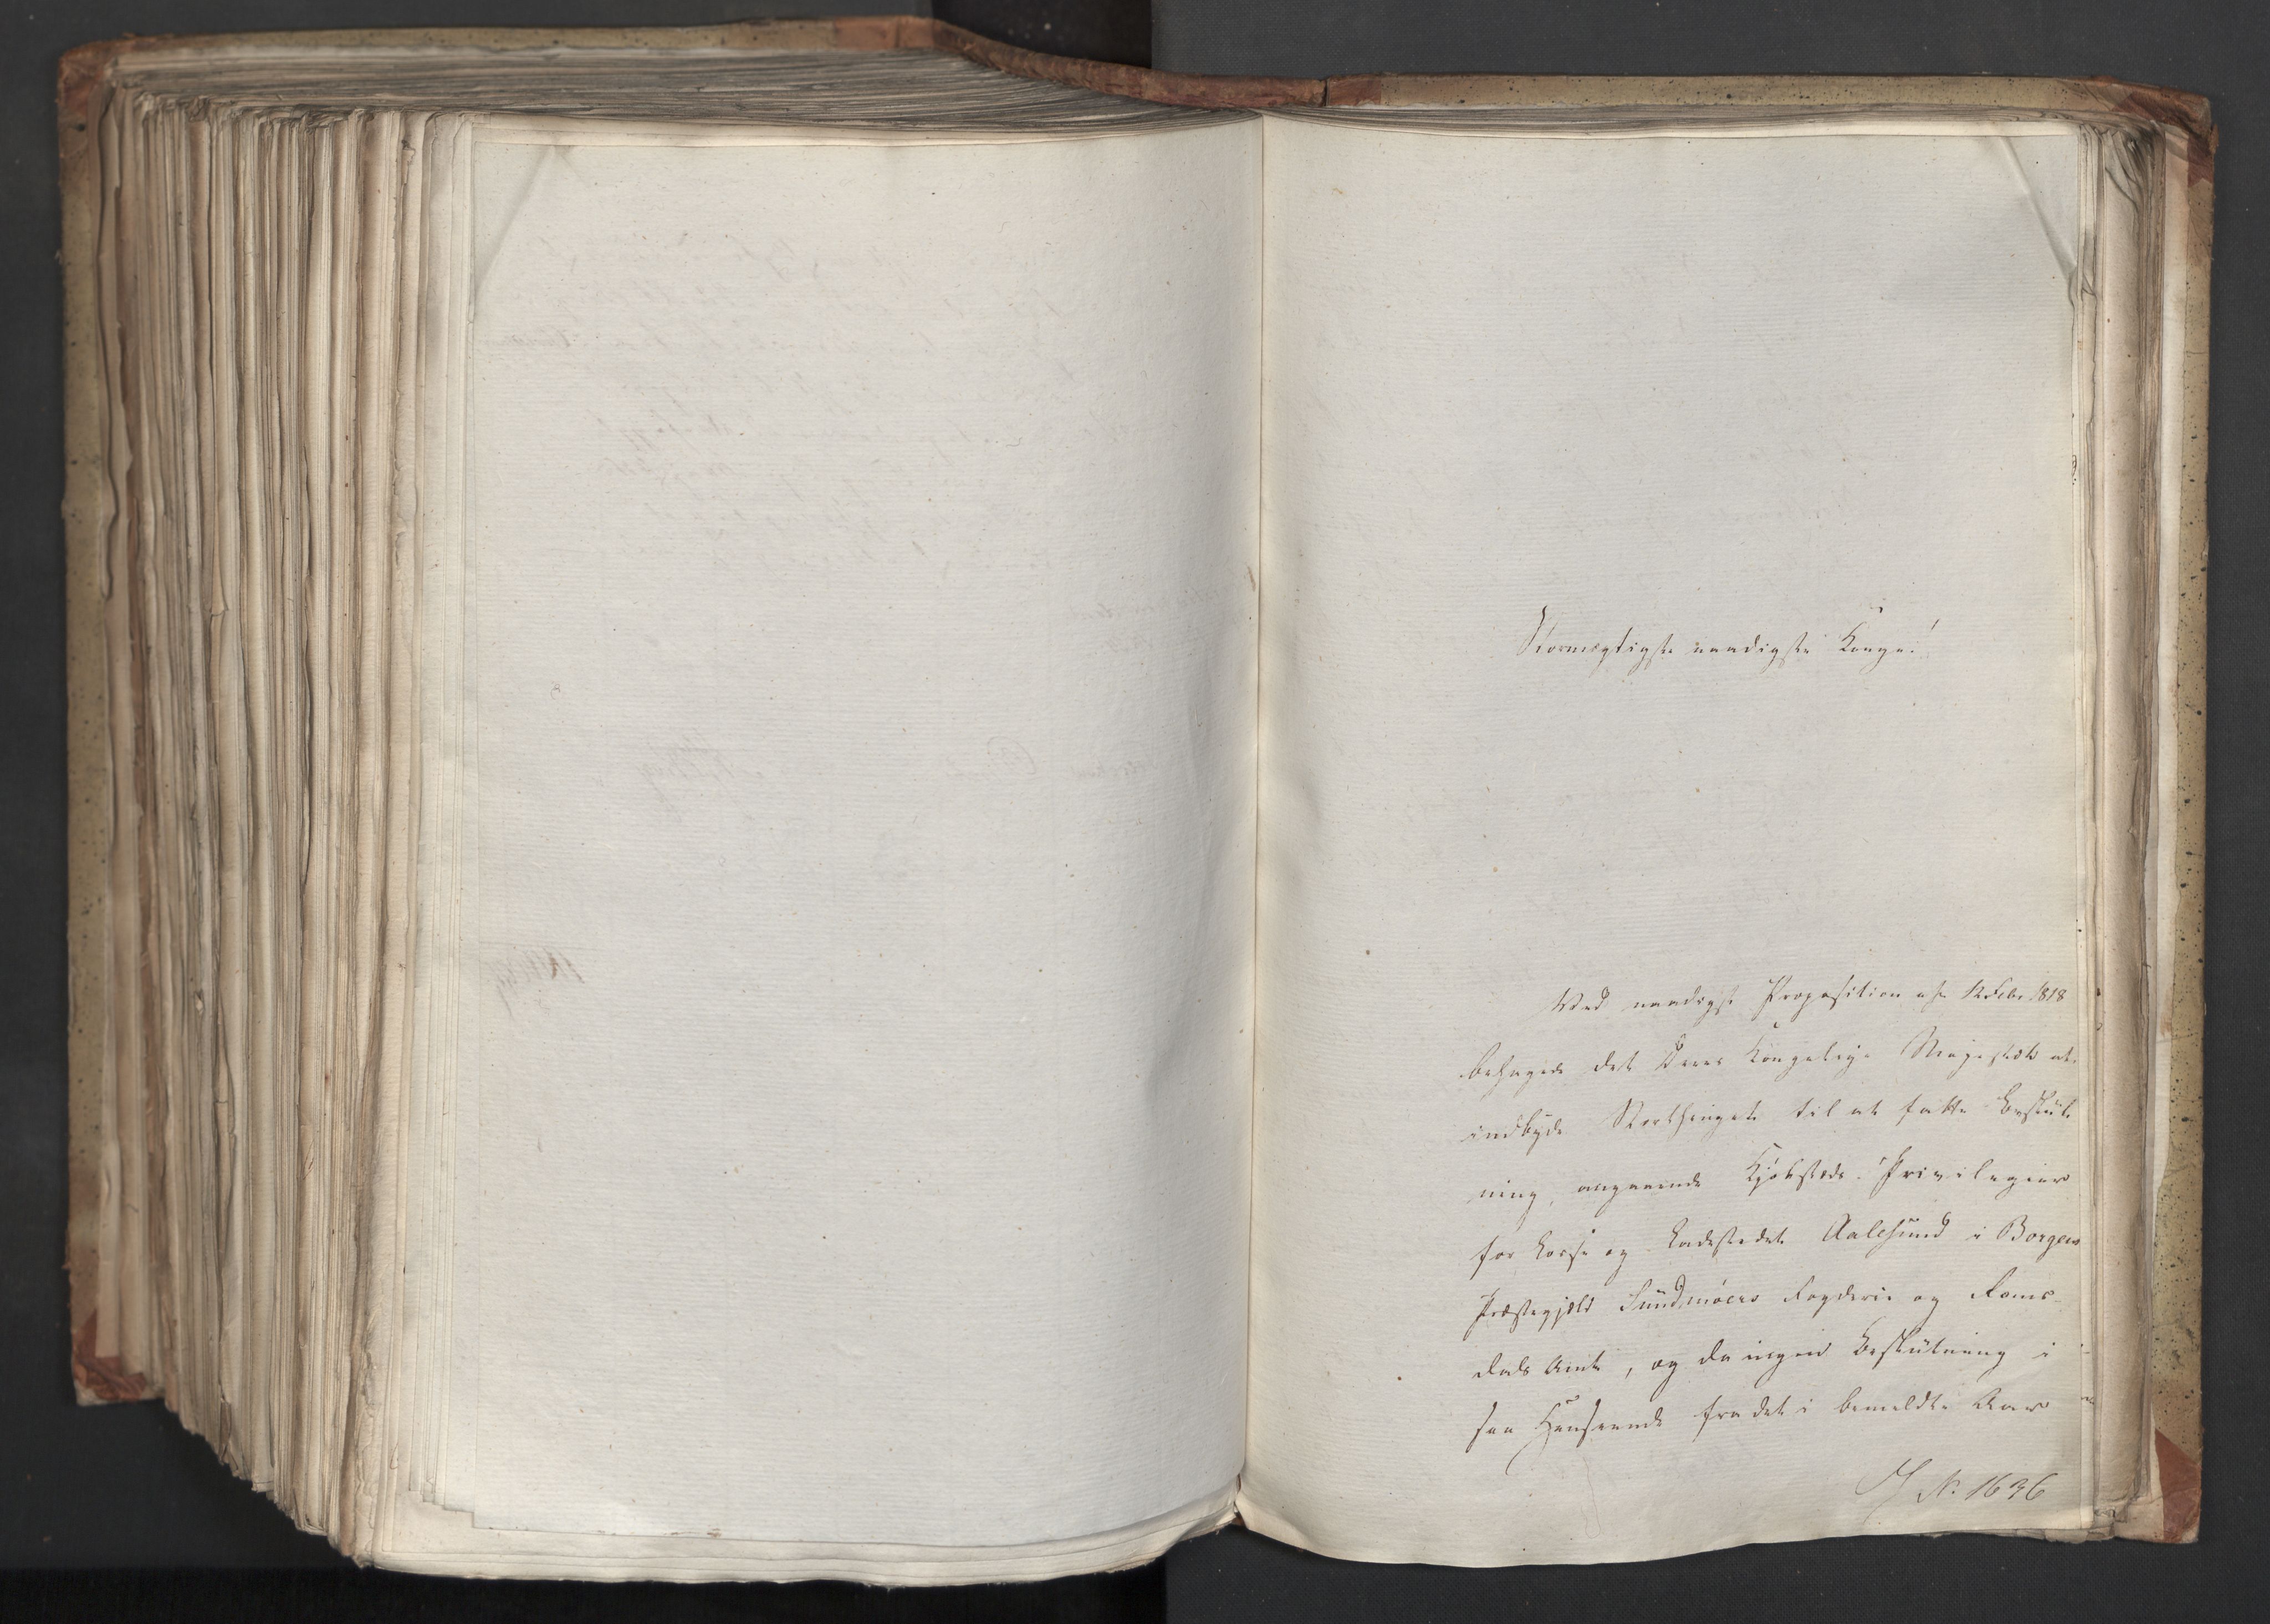 Stormægtigste naadigste Konge!
Ved naadigst Proposition af 12 Febr. 1818
behagede det Deres Kongelige Majestæt at
indbyde Storthinget til at fatte Beslut
ning angaaende Kjøbsteds-Privilegier
for Losse og Ladestedet Aalesund i Borgens
Præstegjeld Sundmøers Fogderie og Roms-
dals Amt, og da ingen Beslutning i
saa Henseende fra det i bemeldte Aar
J N. 1636